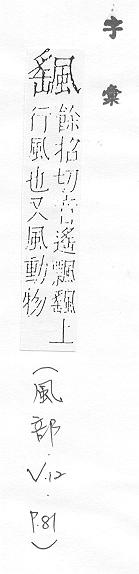 字彙
颻
餘招切音遙飄颻上
行風也又風動物
(風部．V.12．P.81)